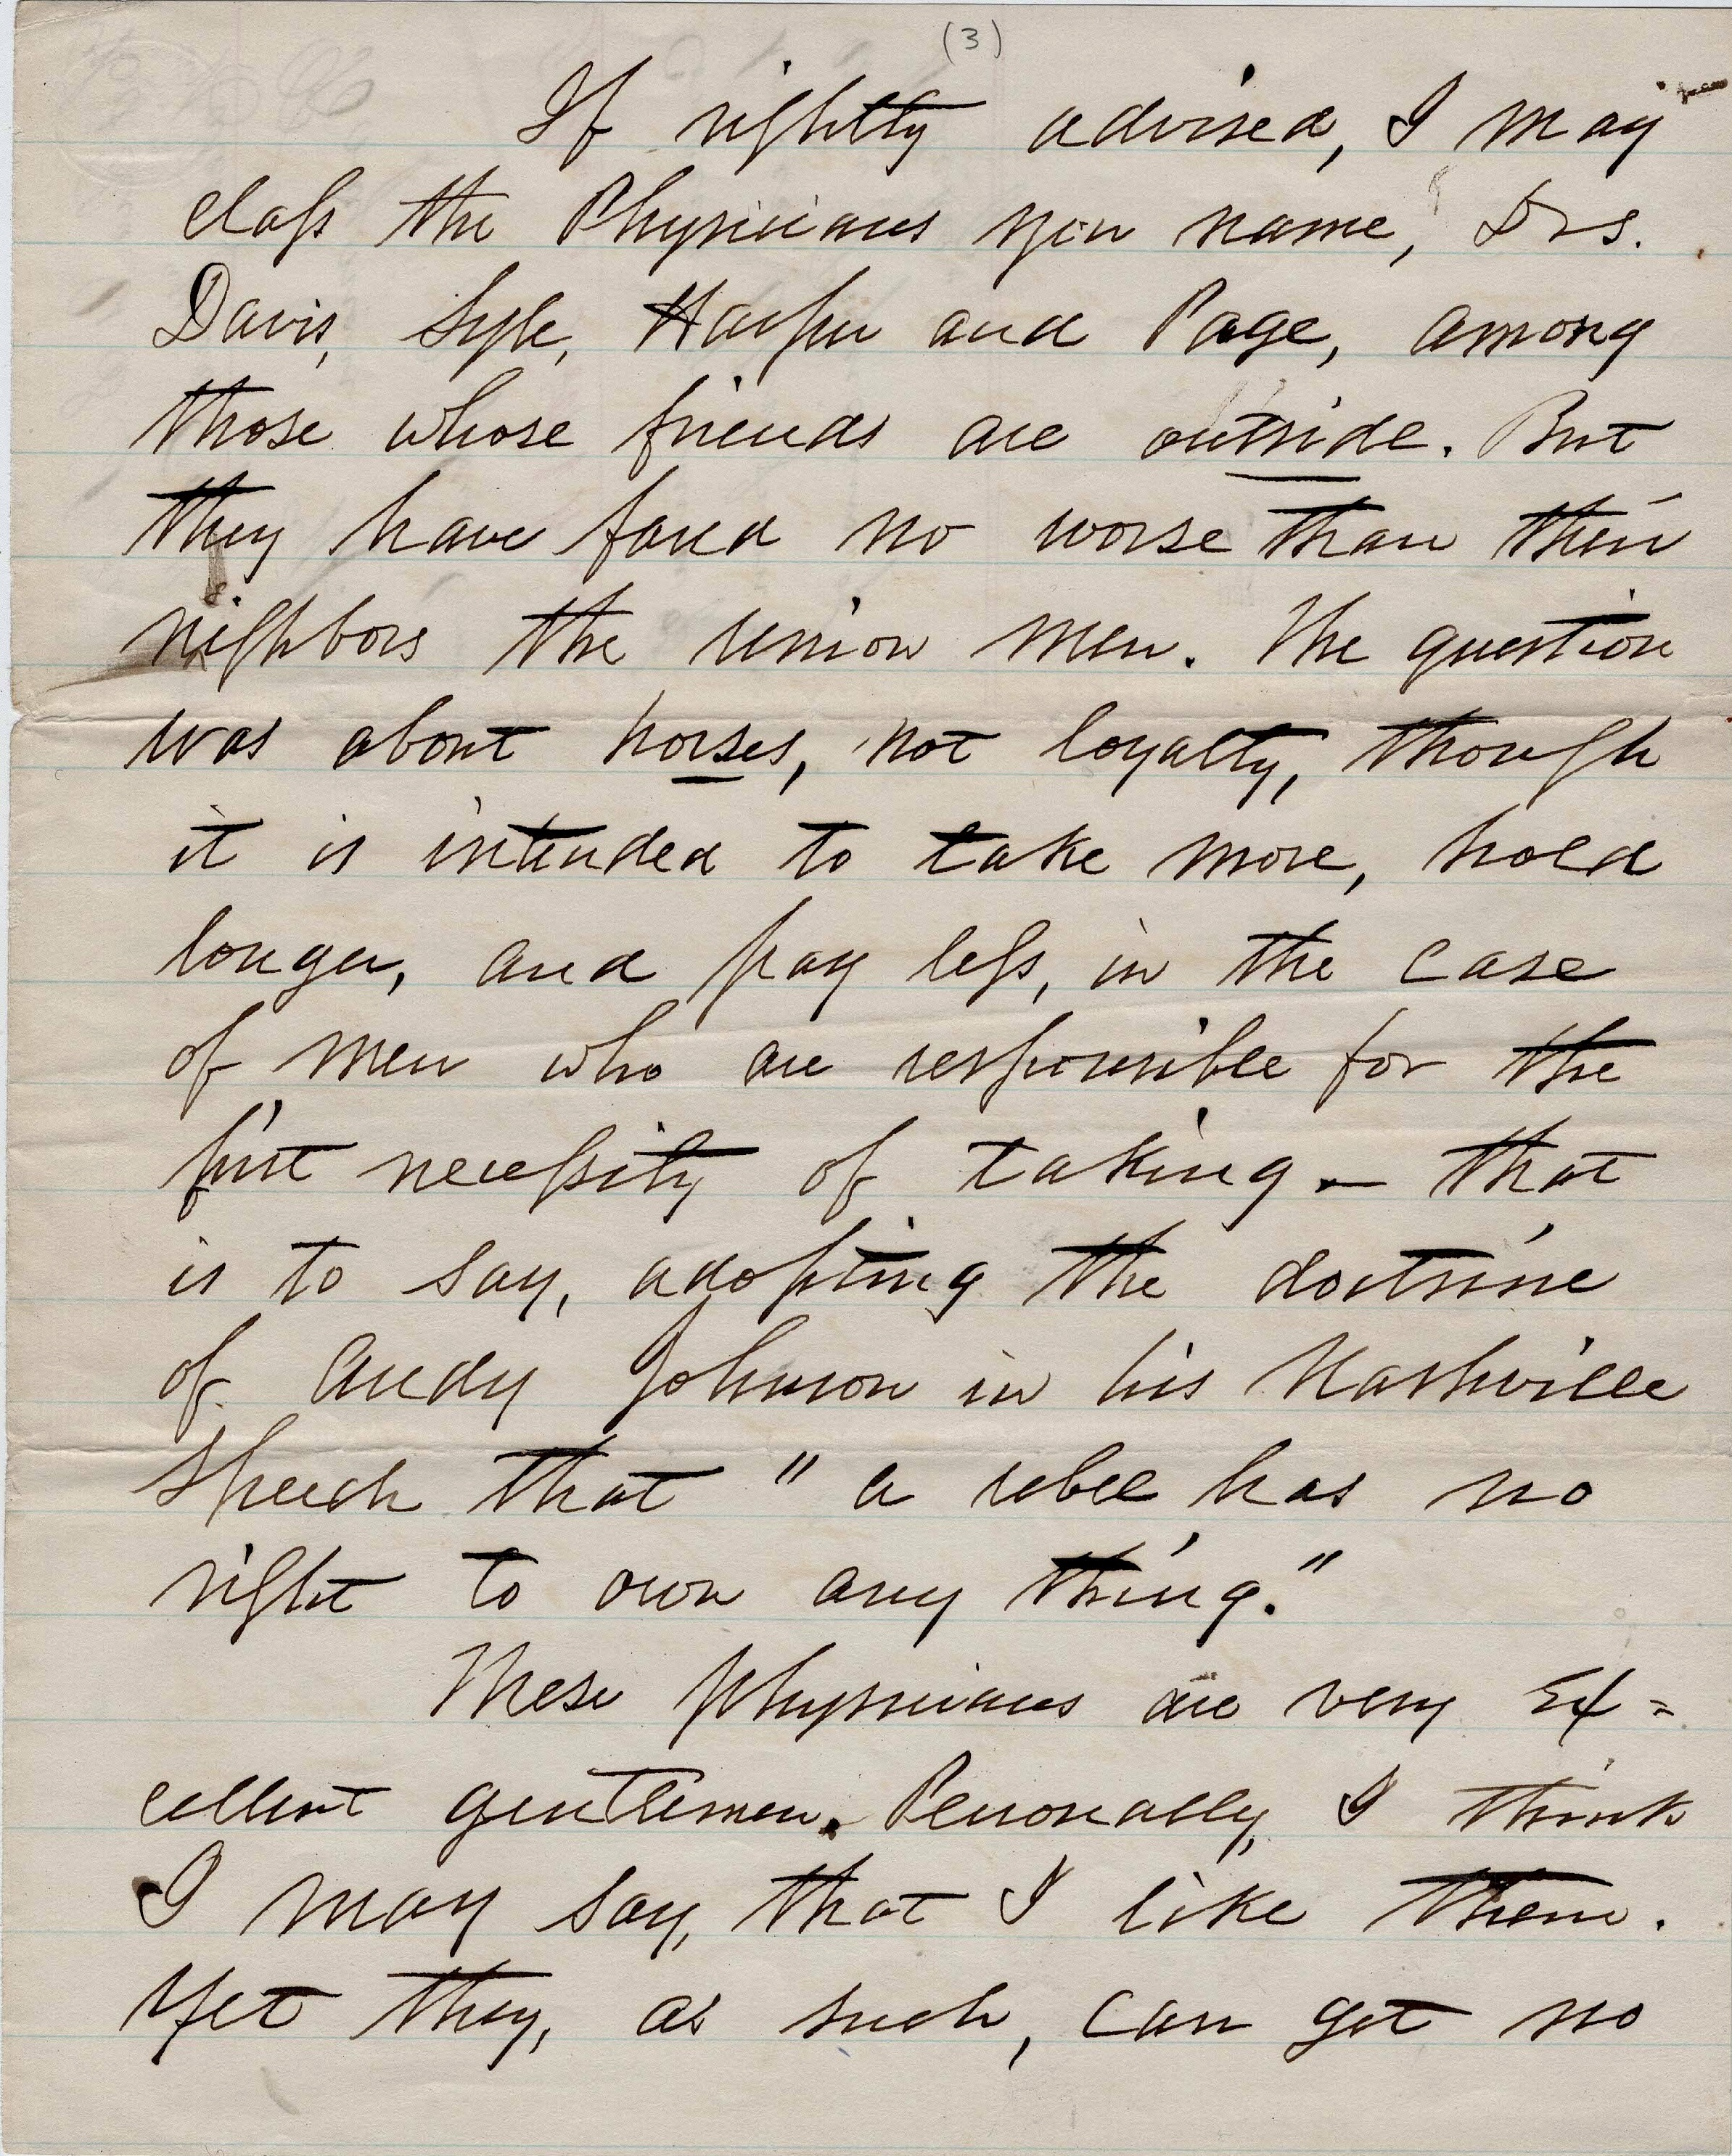 (3)
If rightly advised, I may
class the Physicians you name, Drs.
Davis, Lyle, Harper and Page, among
those whose friends are outside. But
they have fared no worse than their
nighbors the union men. The question
was about horses, not loyalty, though
it is intended to take more, hold
longer, and pay less, in the case
of men who are responsible for the
first necessity of taking – that
is to say, adopting the doctrine
of Andy Johnson in his Nashville
speech that "a rebel has no
right to own any thing."
These physicians are very ex=
cellent gentlemen. Personally, I think
I may say, that I like them.
Yet they, as such, can get no